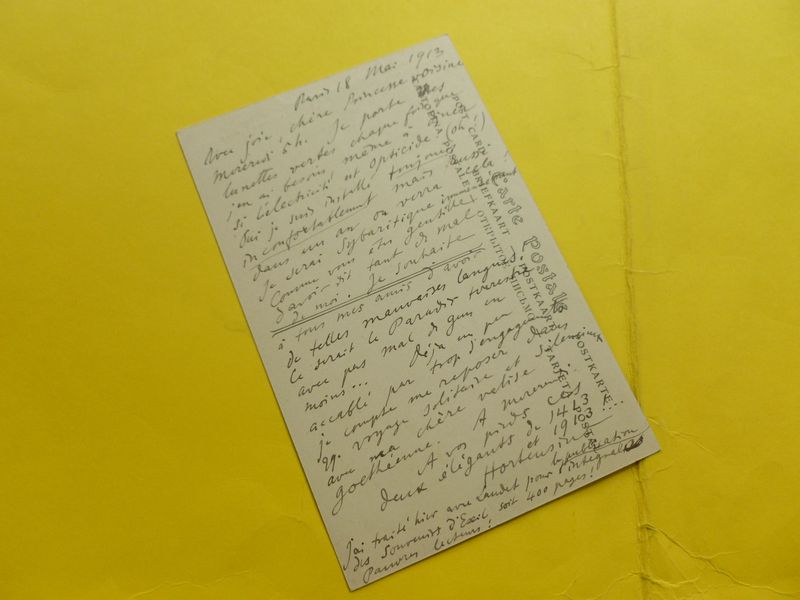 Paris 18 Mai 1913
Avec joie, chère Princesse voisine
mercredi 5h. Je porte mes
lunettes vertes chaque fois que
j'en ai besoin même à
si l'électricité est opticide (oh!)
Oui je suis installé toujours
inconfortablement mais aussi
dans un an on verra cela!
Je serai sybaritique
Comme vous êtes gentille
d'avoir dit tant de mal
de moi. Je souhaite
à tous mes amis d'avoir
de telles mauvaises langues.
Ce serait le Paradis terrestre
avec pas mal de gens en
moins... Déjà un peu
accablé par trop d'engagements
je compte me reposer dans
un voyage solitaire et silencieux
avec ma chère valise
goethéenne. A mercredi.
A vos pieds ces
deux élégants de 1413
et 1913 ....
Hortensius
j'ai traité hier avec Laudet pour la publication
des Souvenirs d'Exil soit 400 pages! intégrale
Pauvres lecteurs!
Carte Postale
POST CARD BRIEFKAART
POSTKAART
POSTKARTE
TARJETA POSTAL